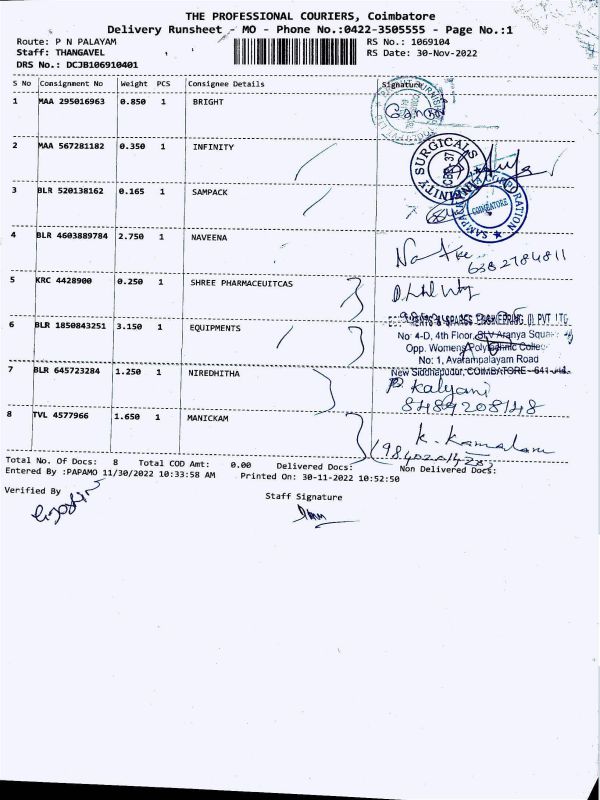 THE PROFESSIONAL COURIERS, Coimbatore
Delivery Runsheet - MO - Phone No.:0422-3505555 - Page No.:1
Route: P N PALAYAM RS No.: 1069104
Staff: THANGAVEL RS Date: 30-Nov-2022
DRS No.: DCJB106910401
S No Consignment No Weight PCS Consignee Details Signature
1 MAA 295016963 0.850 1 BRIGHT
2 MAA 567281182 0.350 1 INFINITY
SURGICALS
3 BLR 520138162 0.165 1 SAMPACK
COIMBATORE
4 BLR 4603889784 2.750 1 NAVEENA
6382784811
5 KRC 4428900 0.250 1 SHREE PHARMACEUITCAS
6 BLR 1850843251 3.150 1 EQUIPMENTS
& SPARES ENGINEERING (I) PVT LTD
No: 4-D, 4th Floor, Aranya Square
Opp. Womens Polytechnic College
No: 1, Avarampalayam Road
New Siddhapudur, COIMBATORE - 641
7 BLR 645723284 1.250 1 NIREDHITHA
P. Kalyani
8489208148
8 TVL 4577966 1.650 1 MANICKAM
K. Kamalam
Total No. Of Docs: 8 Total COD Amt: 0.00 Delivered Docs: Non Delivered Docs:
Entered By :PAPAMO 11/30/2022 10:33:58 AM Printed On: 30-11-2022 10:52:50
Verified By
Staff Signature